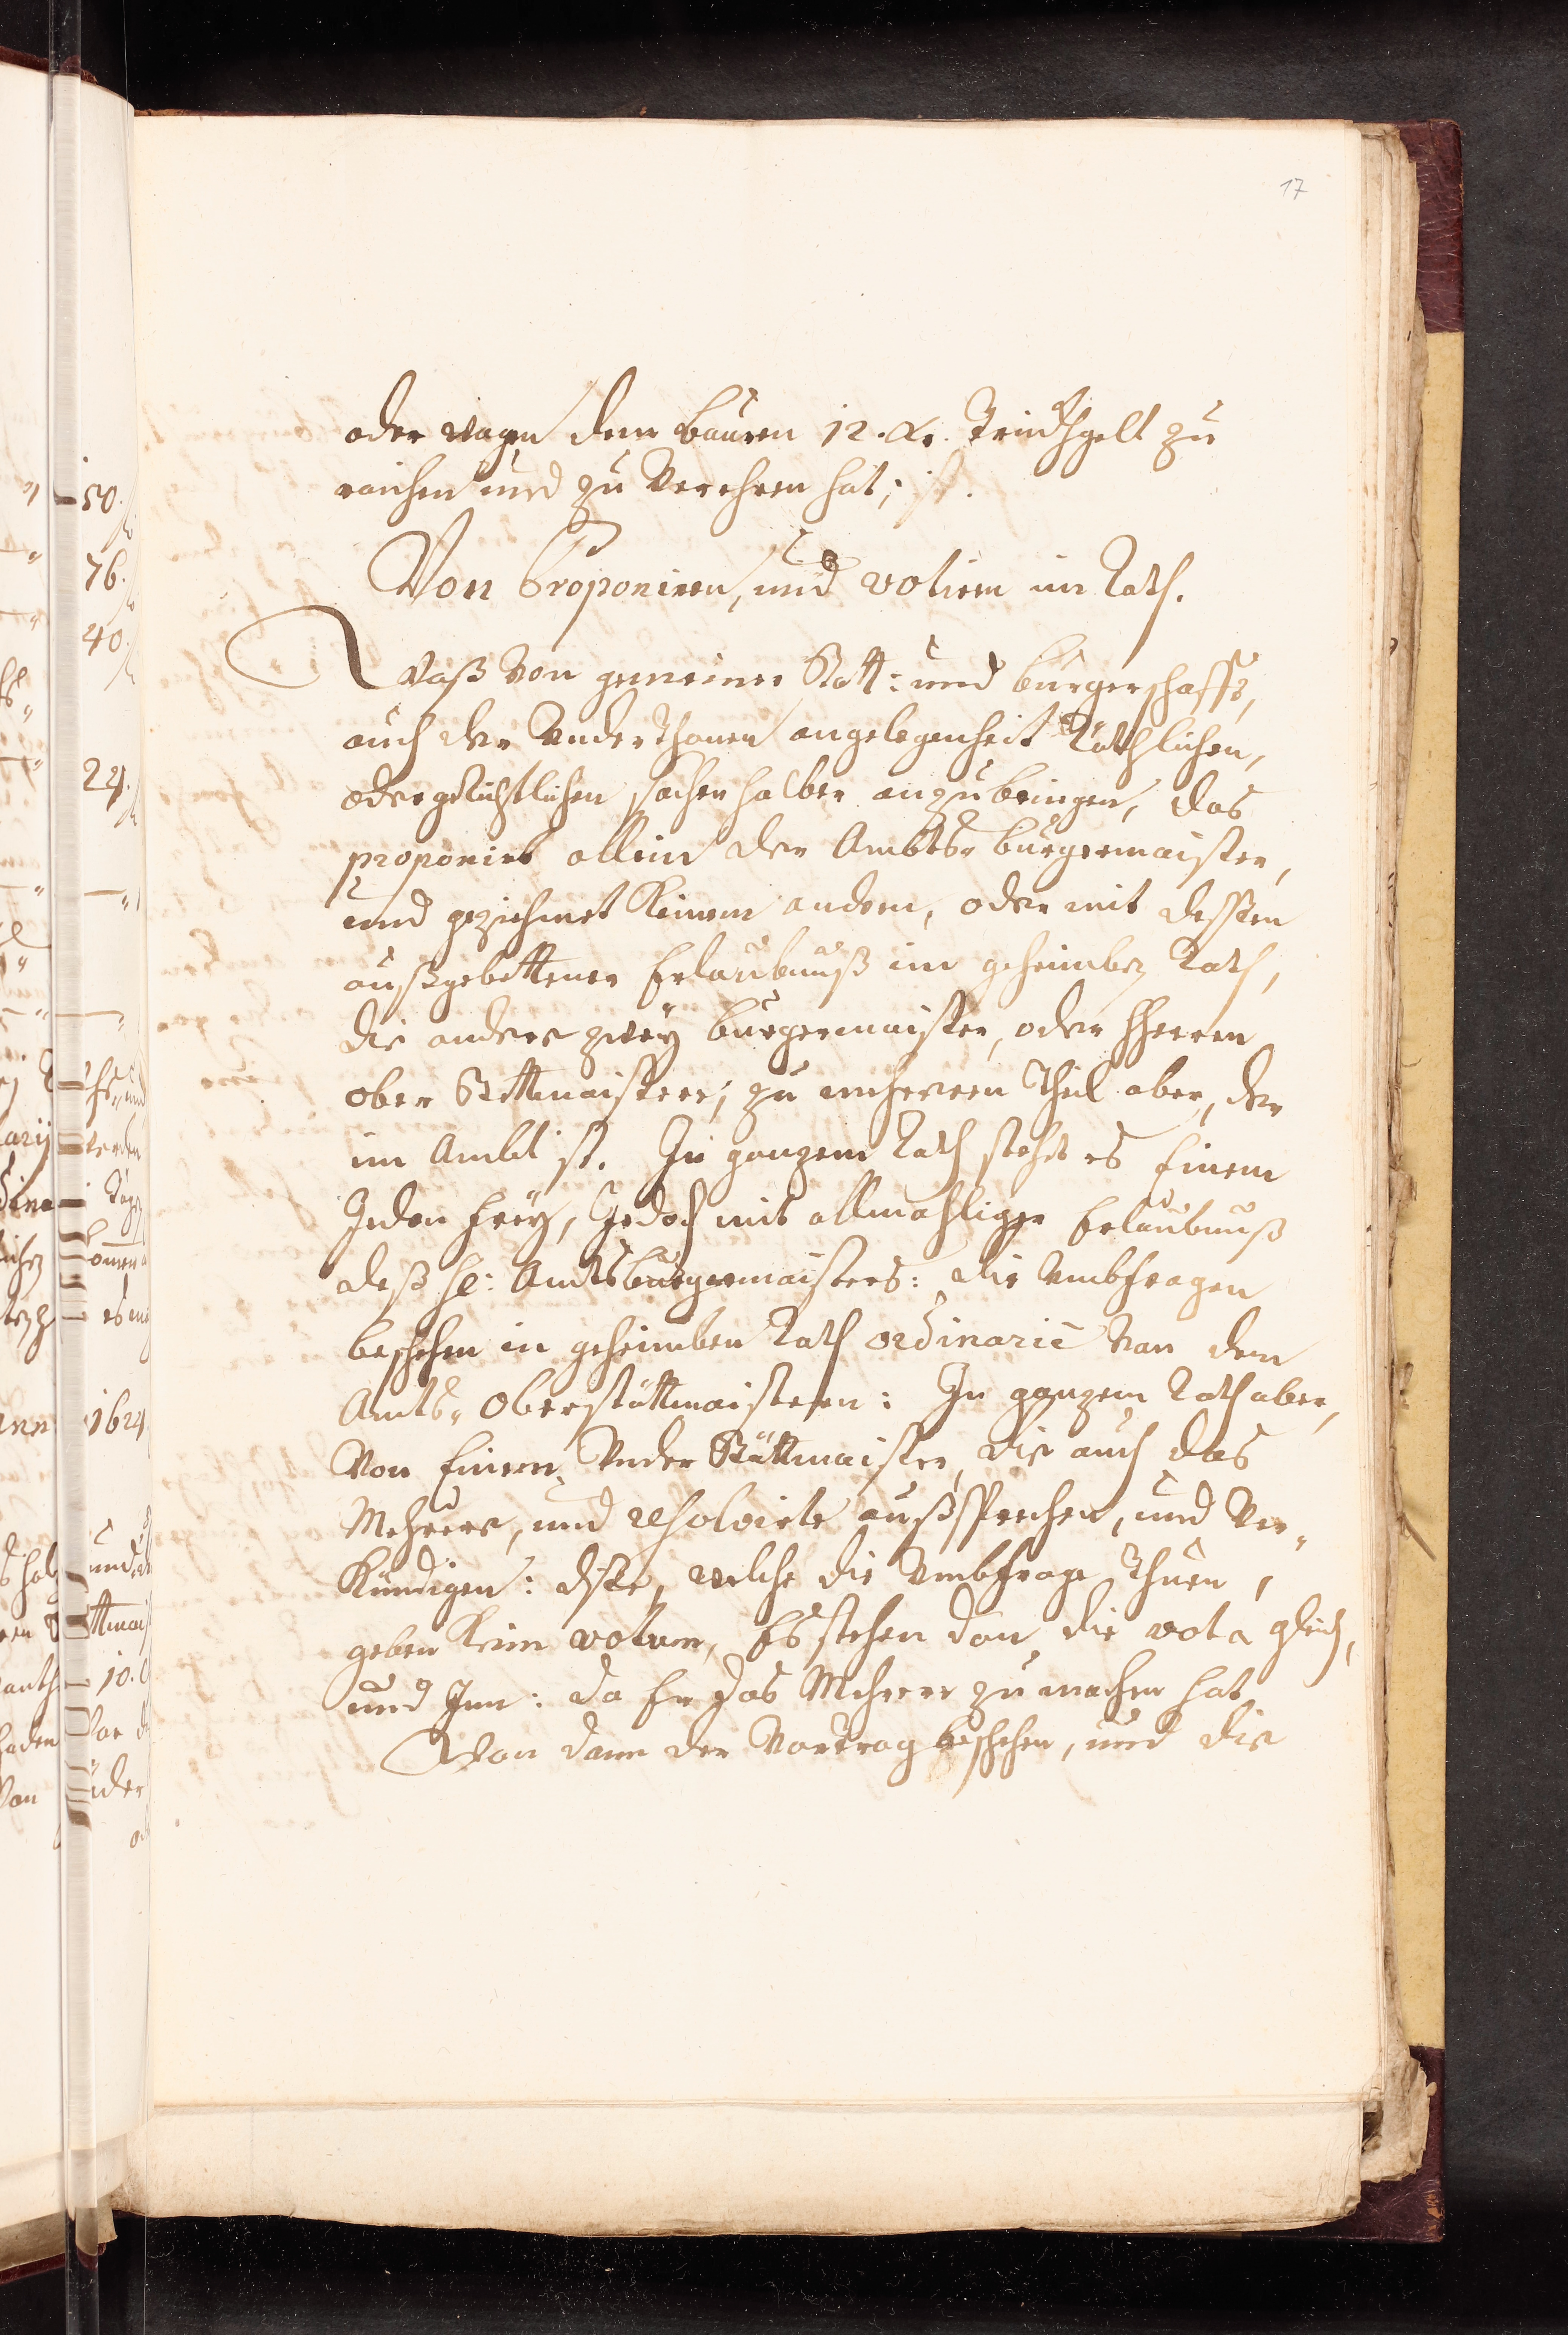 17
oder wagen dem bauren 12. xr. Trinckhgelt zu
raichen und zu Verehren hat;
Von Proponiren, und votiren im Rath.
Waß von gemeiner Statt: und burgerschafft,
auch der Underthonen angelegenheit Räthlichen,
oder gerichtlichen sachen halber anzubringen, das
proponirt allein der Ambts burgermaister,
und gezichmet keinem andern, oder mit dessen
außgebettener Erlaubnuß im geheimben Rath,
die andere zwey burgermaister, oder hherren
ober Stettmaistere; zu mehrerem theil aber, der
im Ambt ist. In ganzem Rath stehet es Einem
Jeden freÿ, Jedoch mit allmahliger Erlaubnuß
deß hl: Ambtsburgermaisters: die Umbfragen
beschehen in geheimben Rath ordinariè Von dem
Ambts-Oberstättmaistern: In ganzem Rath aber,
Von Einem Under Stättmaister, die auch das
Mehrere, und resolvirte außsprechen, und Ver-
kündigen: dise, welche die Umbfrage thuen,
geben kein votum, Es stehen dan die vota gleich,
und Inn: da Er das Mehrere zu machen hat
Wan dann der Vortrag beschehen, und die
50.
76.
40.
24.
1624.
10.